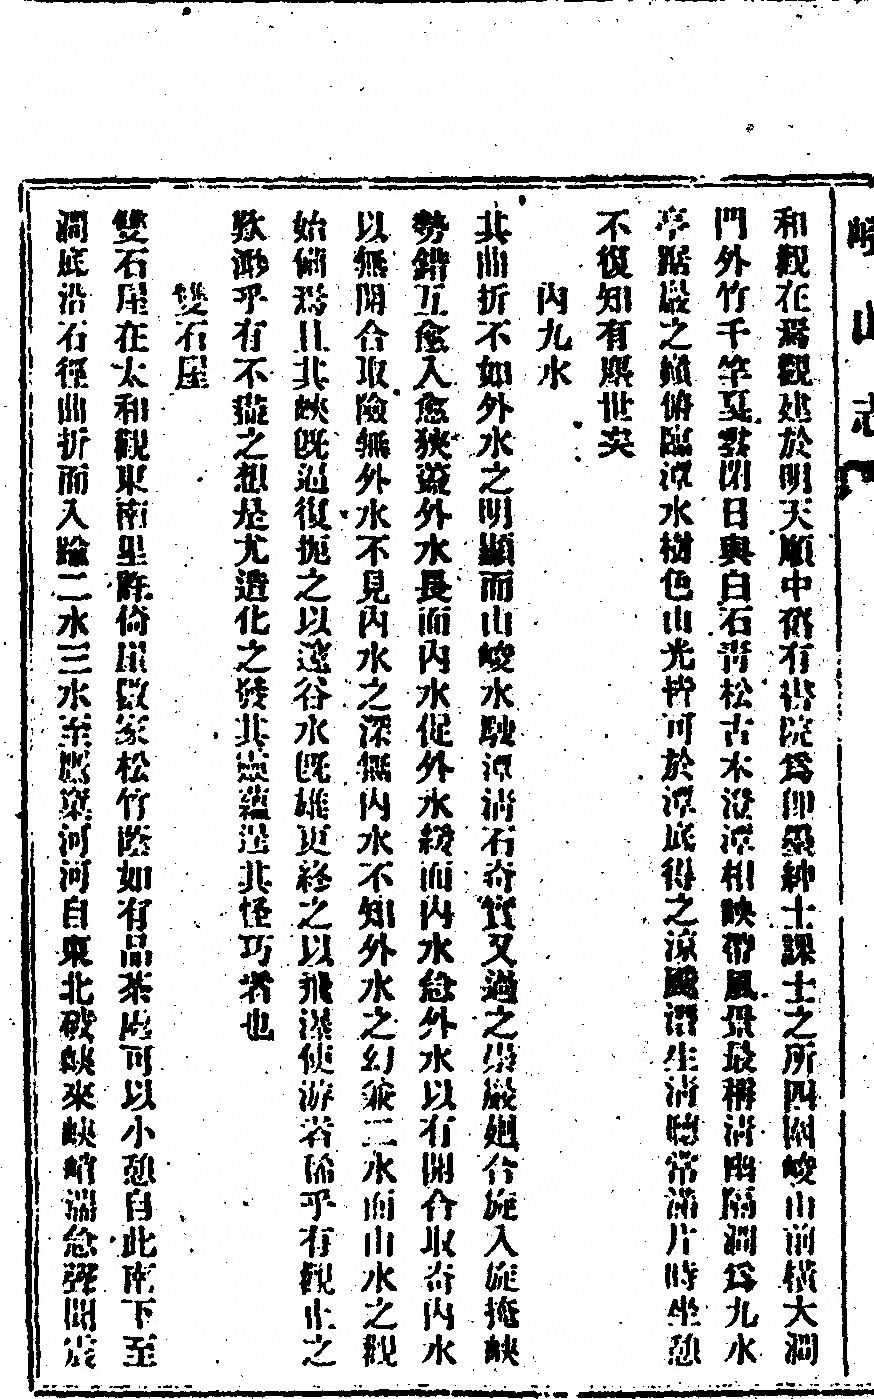 嶗山志
和觀在焉觀建於明天順中舊有書院爲卽墨紳士課士之所四圍峻山前橫大澗
門外竹千竿夏雲閉日與白石靑松古木澄潭相映帶風景最稱淸幽隔澗爲九水
亭踞巖之巓俯臨潭水樹色山光皆可於潭底得之涼颸潛生淸聽常滿片時坐憩
不復知有塵世矣
內九水
其曲折不如外水之明顯而山峻水駛潭淸石奇實又過之崇巖廻合旋入旋掩峽
勢錯互愈入愈狹蓋外水長而內水促外水紆而內水急外水以有開合取奇內水
以無開合取險無外水不見內水之深無內水不知外水之幻兼二水而山水之觀
始備焉且其峽旣過復扼之以邃谷水旣雄更終之以飛瀑使游者俙乎有觀止之
歎渺乎有不盡之想是尤造化之發其靈蘊逞其怪巧者也
雙石屋
雙石屋在太和觀東南里許倚崖數家松竹蔭如有品茶處可以小憩自此南下至
澗底沿石徑曲折而入踰二水三水至鷹窠河河自東北破峽來峽峭湍急聲聞震